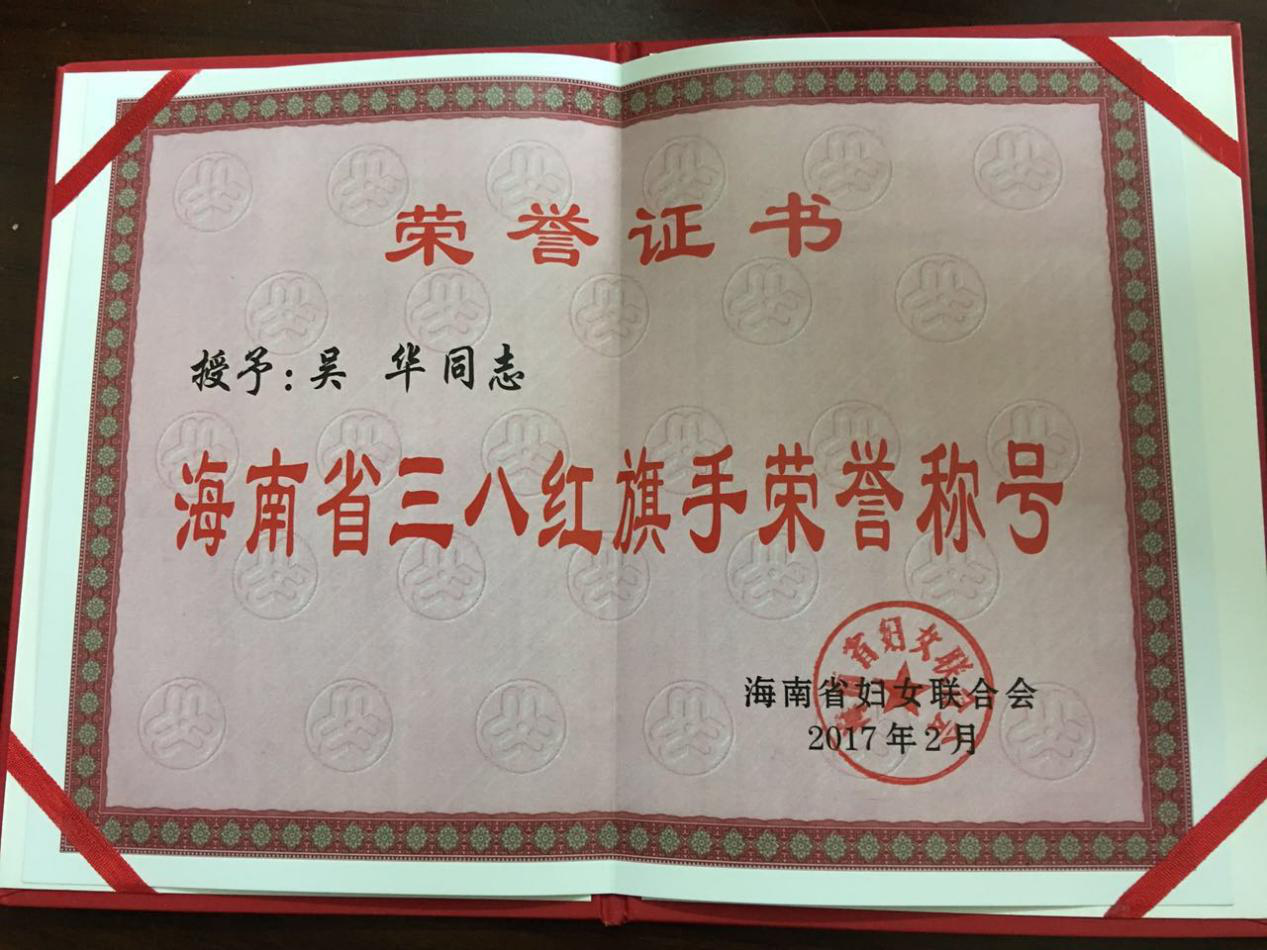 荣誉证书
授予：吴 华同志
海南省三八红旗手荣誉称号
海南省妇女联合会
2017年2月
海南省妇女联合会